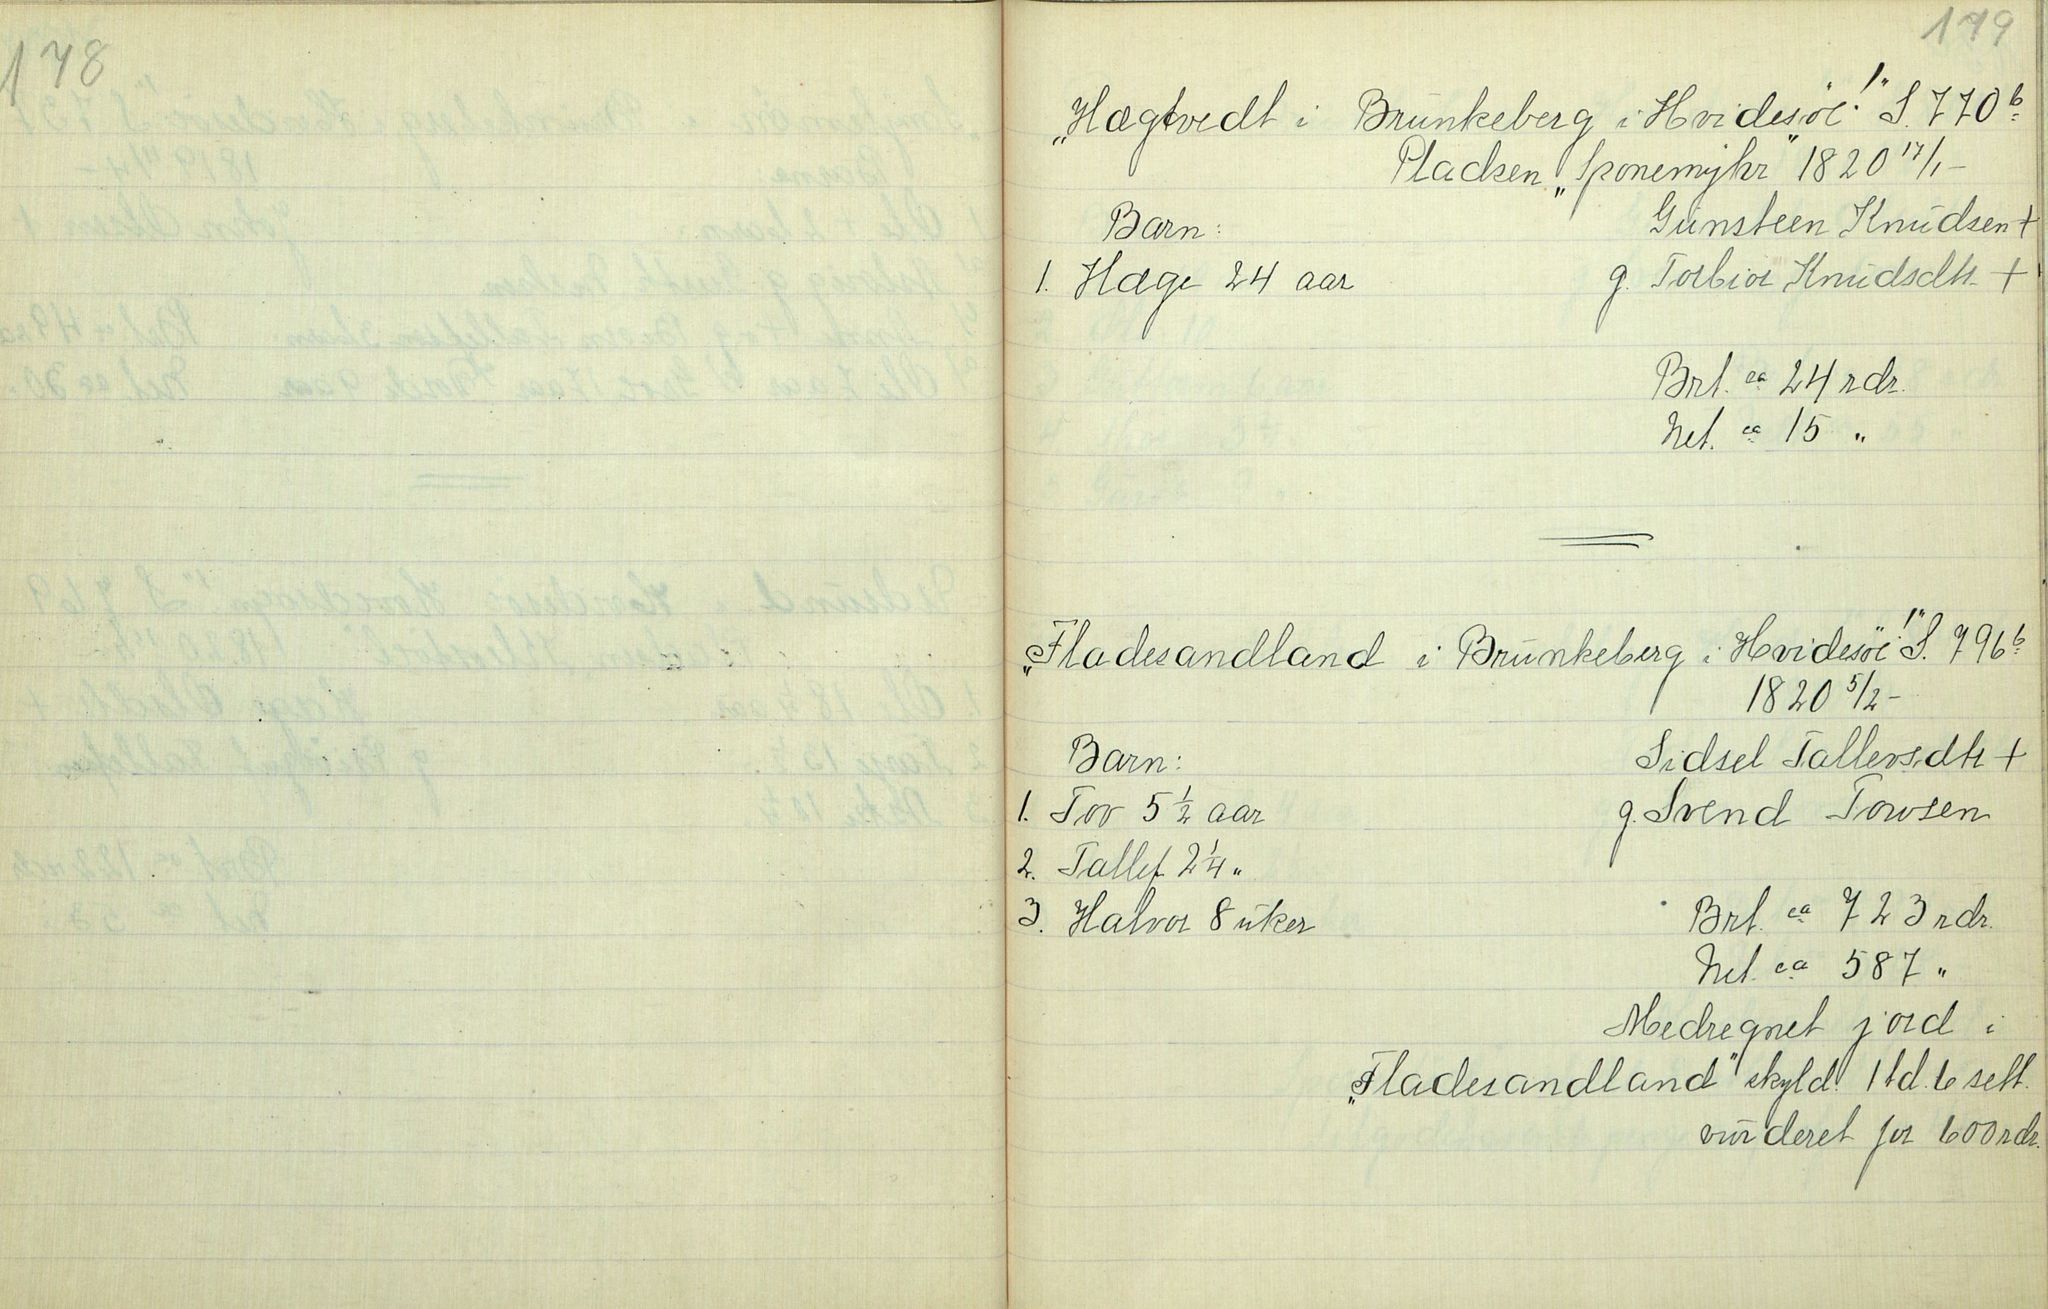 178
179
„Hægtvedt i Brunkeberg i Hvidesöe!" S. 770b
Pladsen „Sponemyhr" 1820 17/1 –
Barn: Gunsteen Knudsen +
1. Hæge 24 aar g. Torbior Knudsdtr +
Brt. ca 24 rdr.
Net. ca 15 "
„Fladesandland i Brunkeberg i Hvidesöe!" S. 796b
1820 5/2 –
Barn: Sidsel Tallevsdtr +
1. Tov 5 1/2 aar g. Svend Tovsen
2. Tallef 2 1/4 "
3. Halvor 8 uker Brt. ca 723 rdr.
Net. ca 587 "
Medregnet jord i
„Fladesandland" skyld. 1 td. 6 sett.
vurderet for 600 rdr.